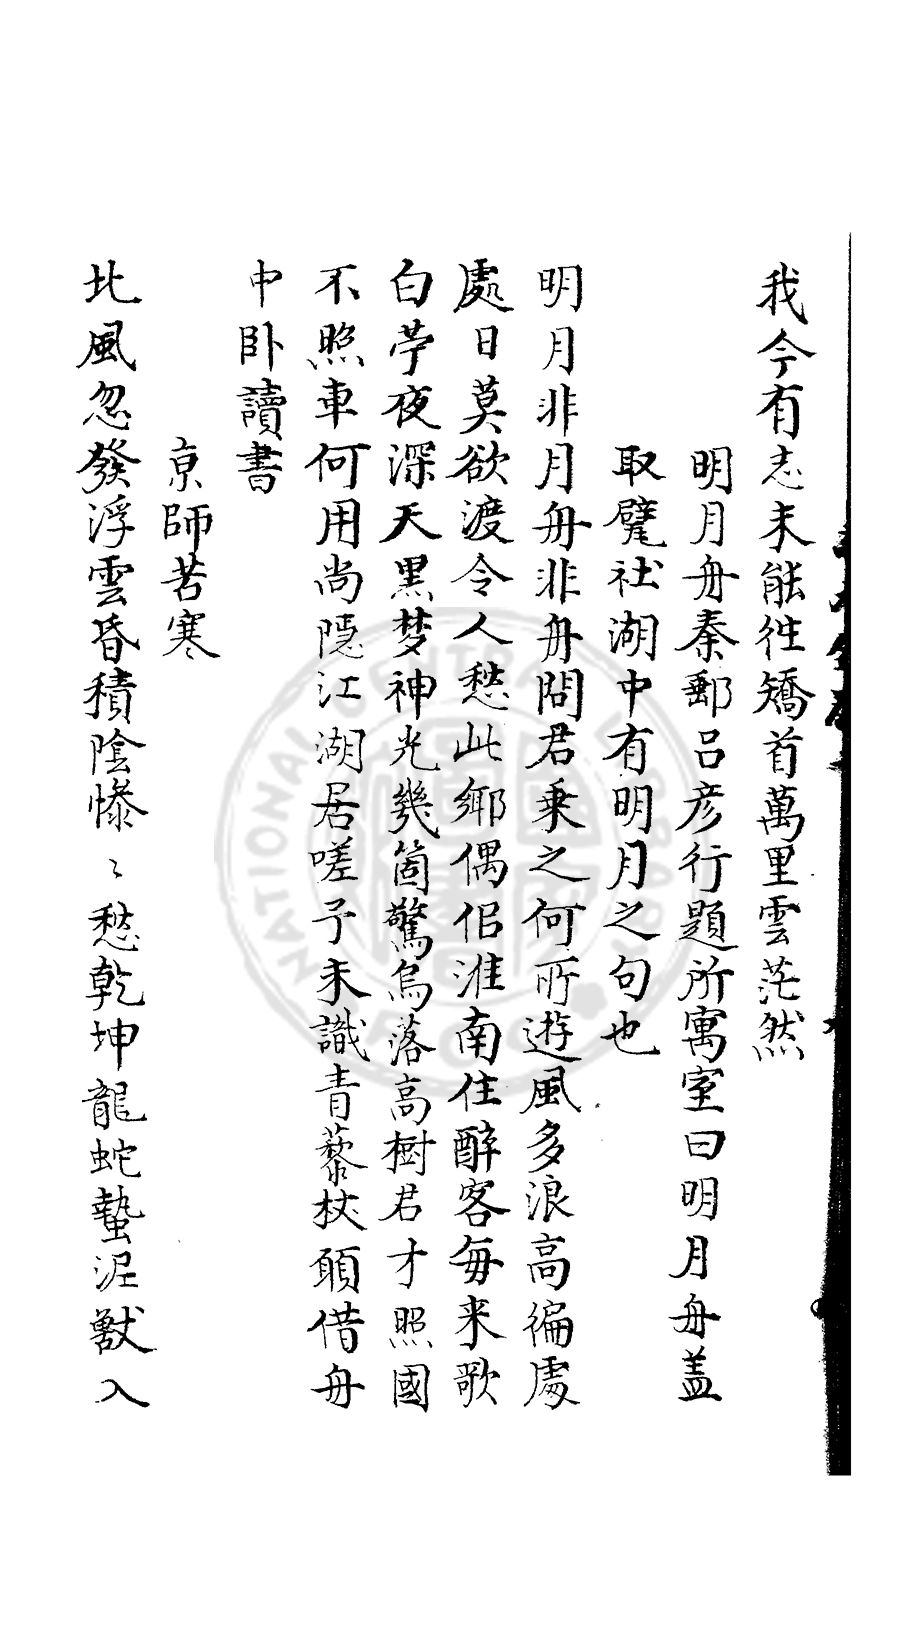 我今有志未能徃矯首萬里雲茫然
明月舟秦郵吕彦行題所寓室曰明月舟盖
取甓社湖中有明月之句也
明月非月舟非舟問君乗之何所遊風多浪高徧處
處日莫欲渡令人愁此鄉偶佀淮南住醉客毎来歌
白苧夜深天黒梦神光幾箇驚烏落高樹君才照國
不照車何用尚隠江湖居嗟予未識青藜杖頋借舟
中卧讀書
京師苦寒
北風忽發浮雲昏積陰慘〻愁乾坤龍蛇蟄泥獸入
NATIONAL CENTRAL LIBRARY